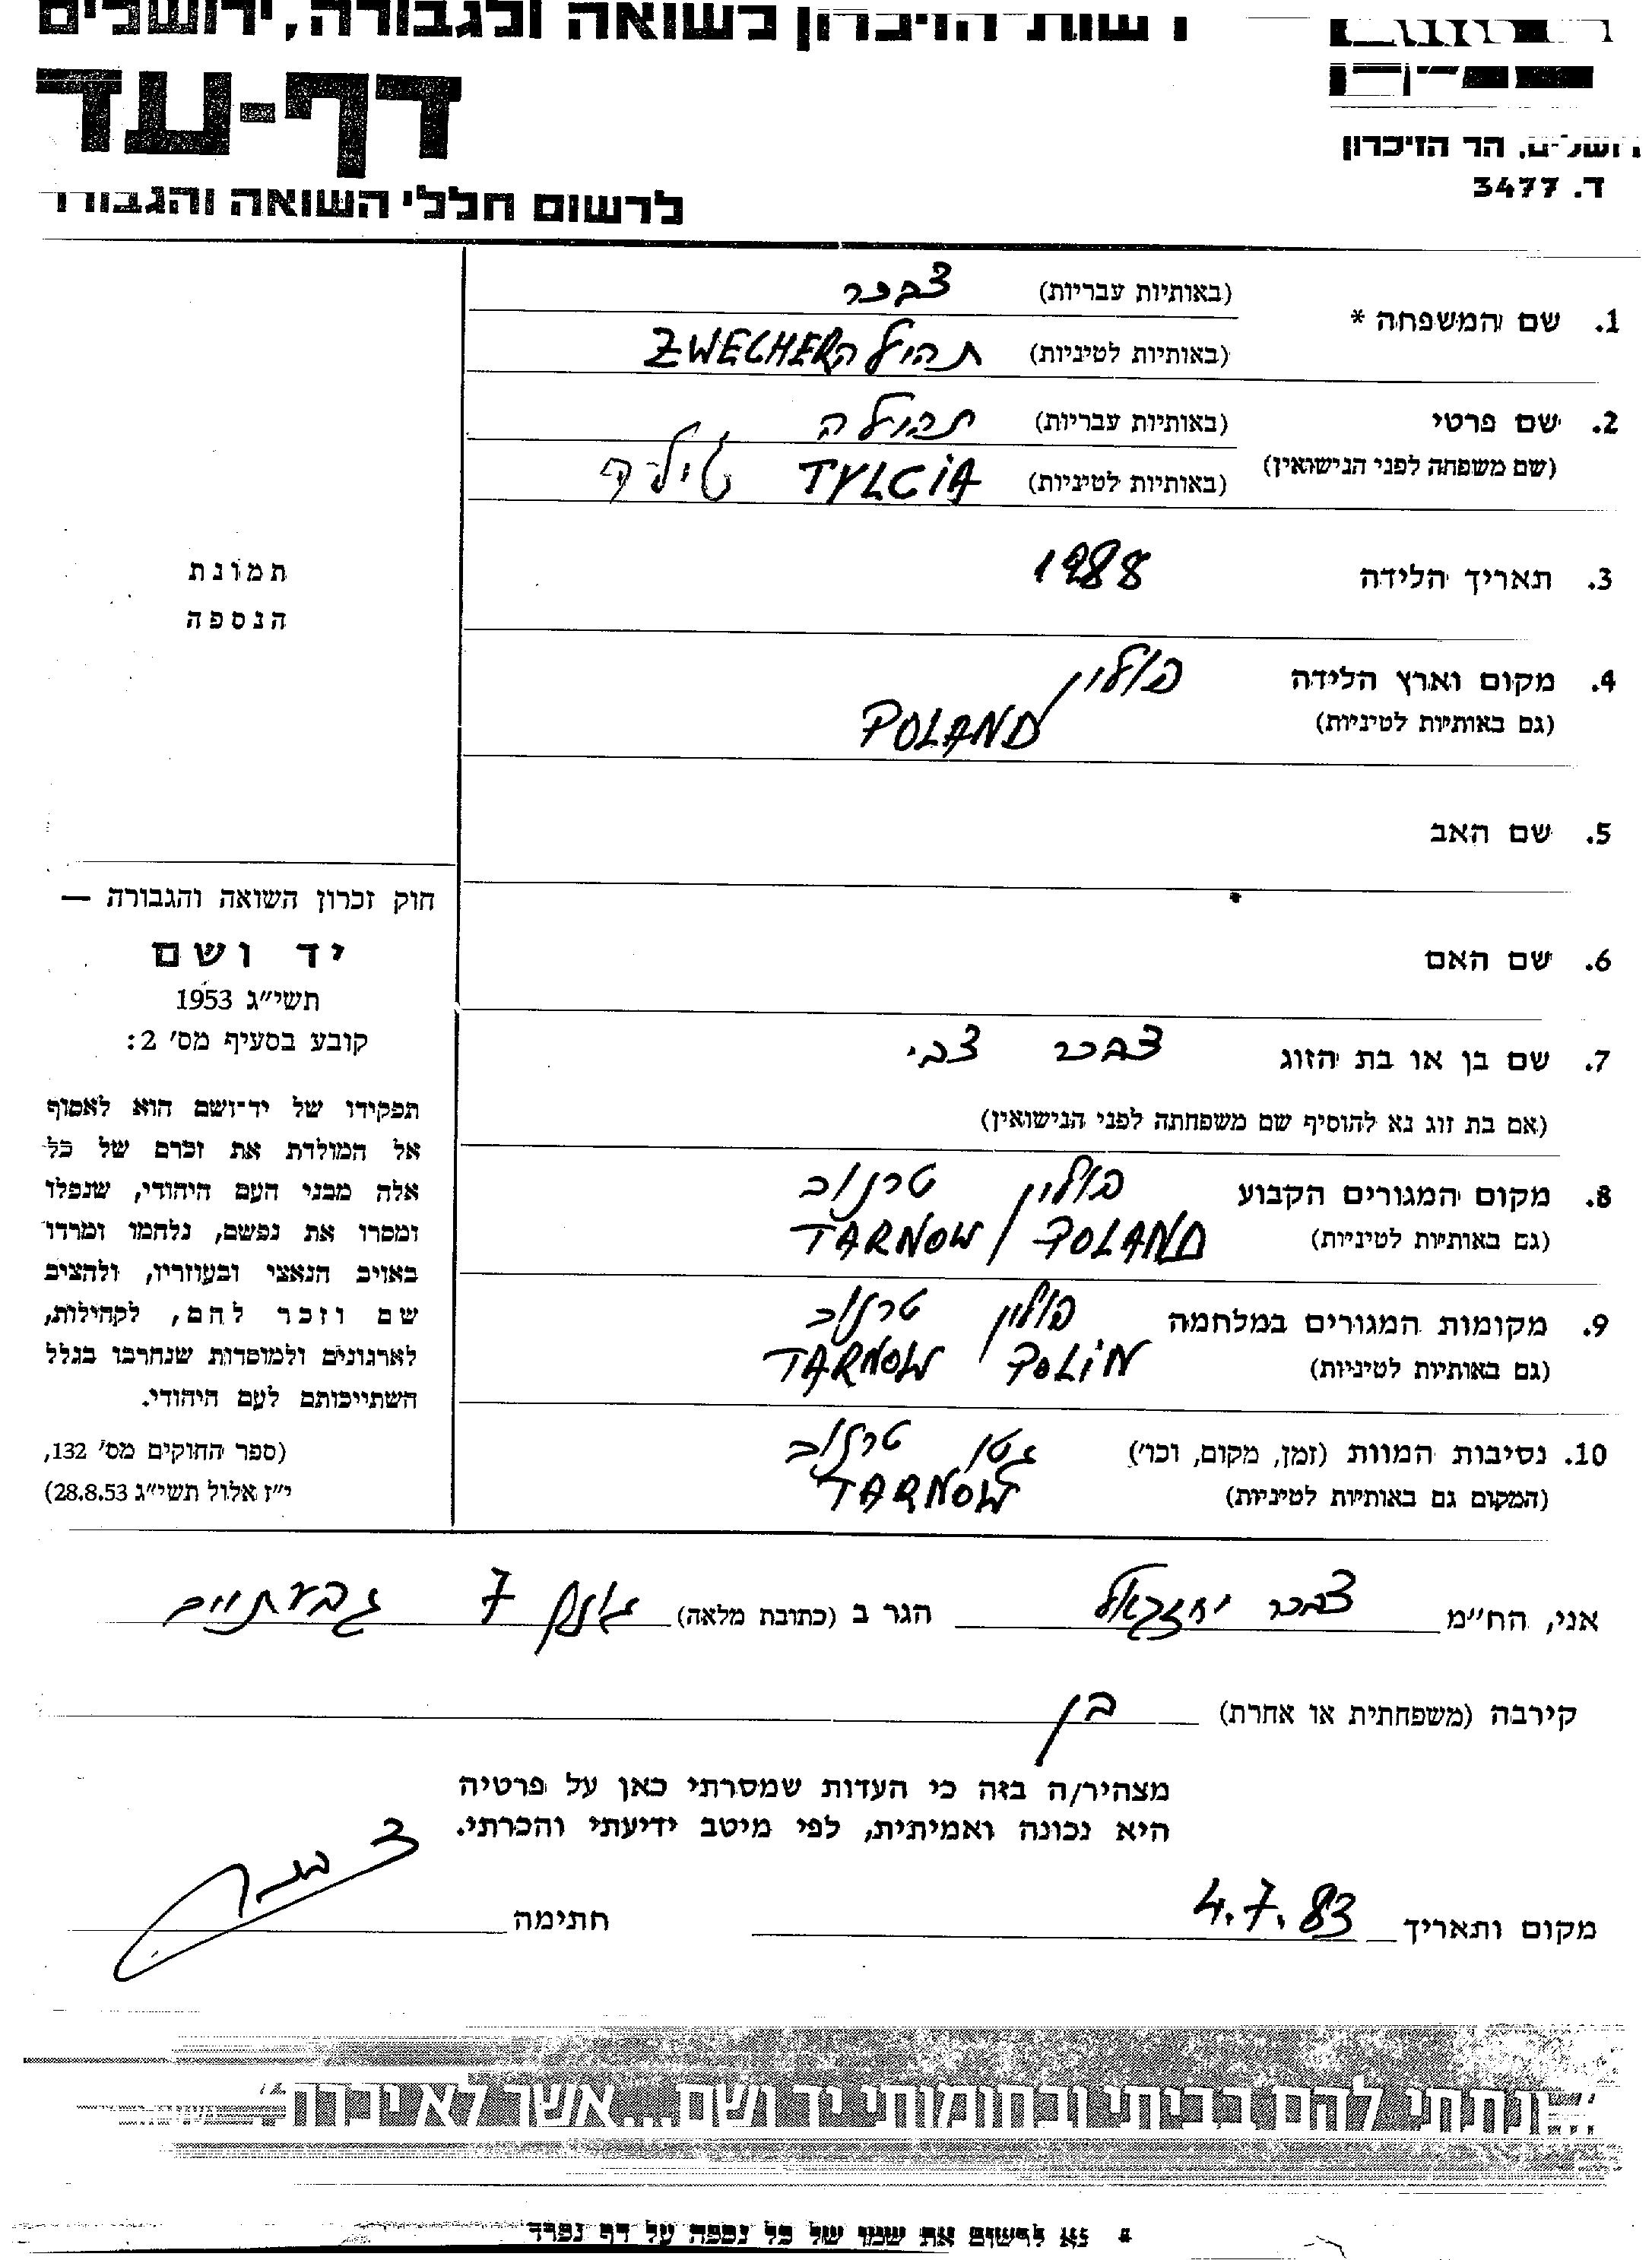 רשות הזיכרון לשואה ולגבורה, ירושלים
דף-עד
לרשום חללי השואה והגבורה
ירושלים, הר הזיכרון
ת. ד. 3477
1. שם המשפחה *
(באותיות עבריות) צבכר
(באותיות לטיניות) תהילה ZWECHER
2. שם פרטי (באותיות עבריות) תהילה
(שם משפחה לפני הנישואין) (באותיות לטיניות) TYLCIA
3. תאריך הלידה 1988
4. מקום וארץ הלידה פולין
(גם באותיות לטיניות) POLAND
5. שם האב
6. שם האם
7. שם בן או בת הזוג צבכר צבי
(אם בת זוג נא להוסיף שם משפחתה לפני הנישואין)
8. מקום המגורים הקבוע פולין טרנוב
(גם באותיות לטיניות) TARNOW / POLAND
9. מקומות המגורים במלחמה פולין טרנוב
(גם באותיות לטיניות) TARNOW POLIN
10. נסיבות המוות (זמן, מקום, וכו') גטו טרנוב
(המקום גם באותיות לטיניות) TARNOW
תמונת
הנספה
חוק זכרון השואה והגבורה —
יד ושם
תשי"ג 1953
קובע בסעיף מס' 2:
תפקידו של יד-ושם הוא לאסוף
אל המולדת את זכרם של כל
אלה מבני העם היהודי, שנפלו
ומסרו את נפשם, נלחמו ומרדו
באויב הנאצי ובעוזריו, ולהציב
שם וזכר להם, לקהילות,
לארגונים ולמוסדות שנחרבו בגלל
השתייכותם לעם היהודי.
(ספר החוקים מס' 132,
י"ז אלול תשי"ג 28.8.53)
אני, הח"מ צבכר יחזקאל הגר ב (כתובת מלאה) 7 גבעתיים
קירבה (משפחתית או אחרת) בן
מצהיר/ה בזה כי העדות שמסרתי כאן על פרטיה
היא נכונה ואמיתית, לפי מיטב ידיעתי והכרתי.
מקום ותאריך 4.7.83 חתימה
"...ונתתי להם בביתי ובחומותי יד ושם...אשר לא יכרת"
* נא לרשום את שמו של כל נספה על דף נפרד